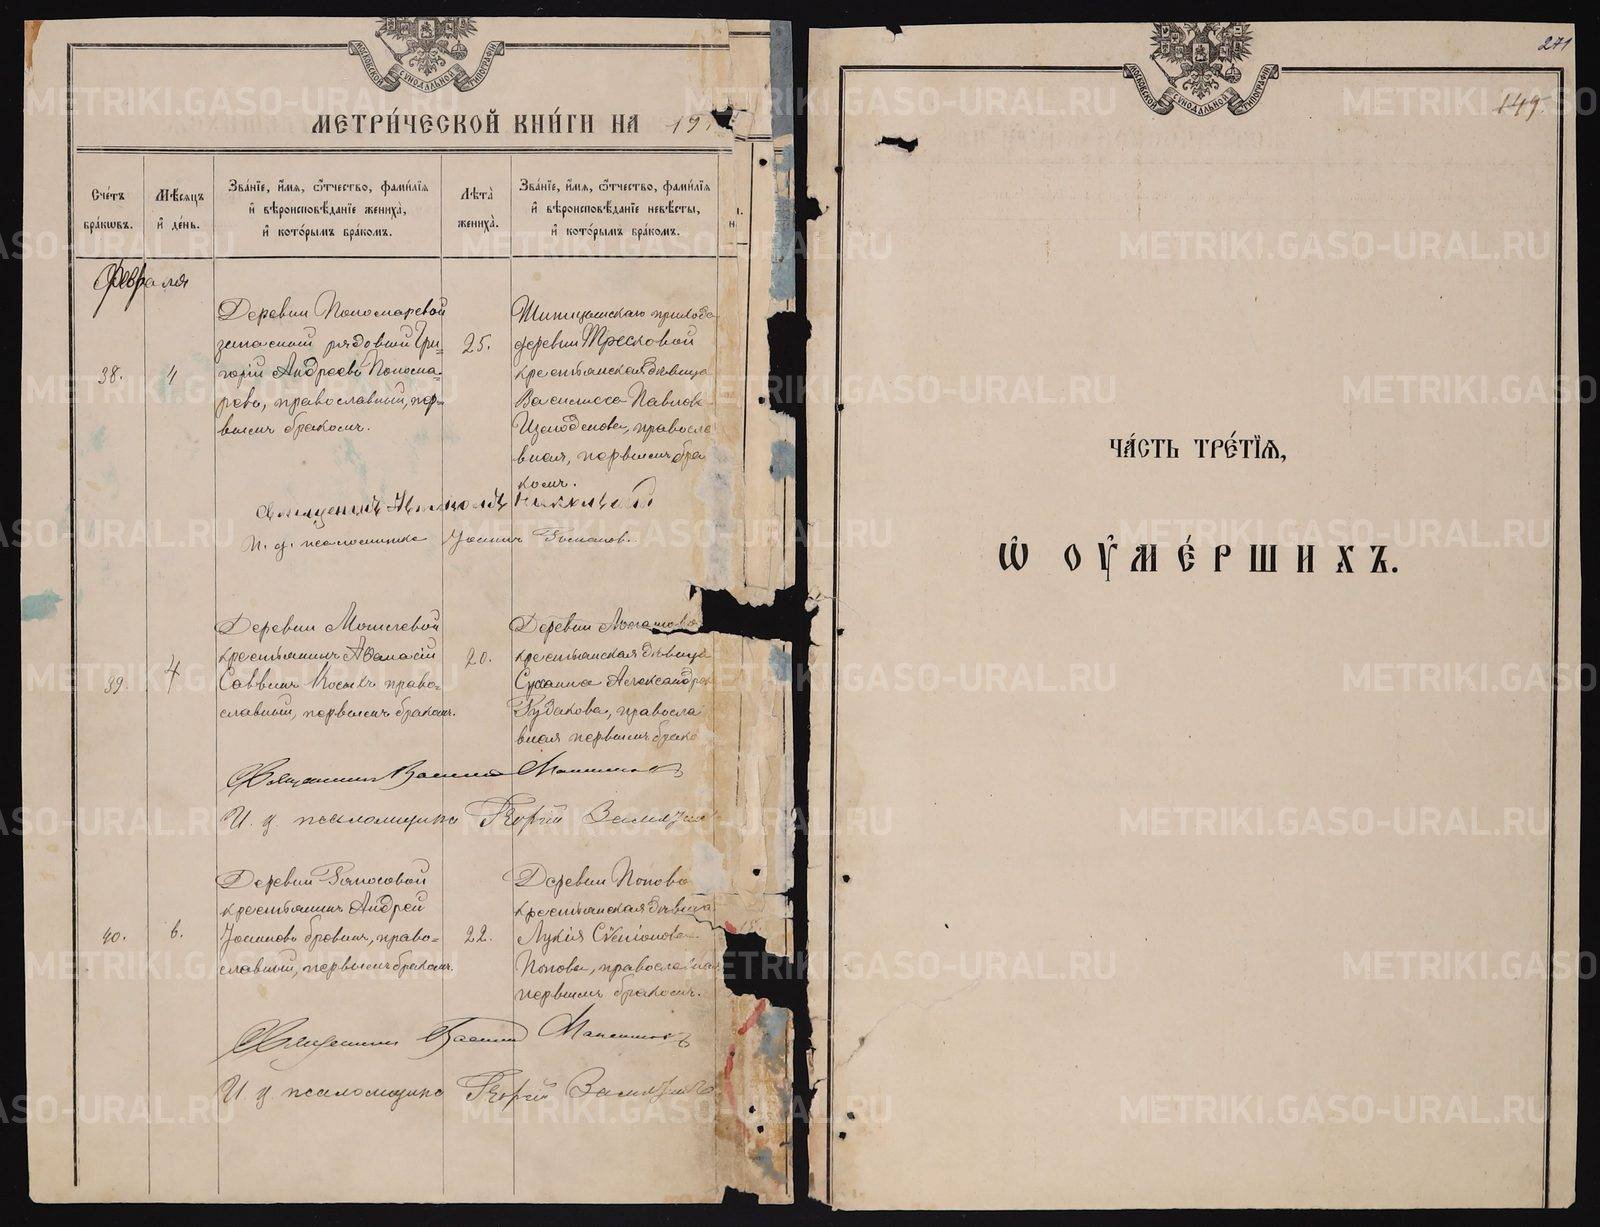 МОСКОВСКОЙ СѴНОДАЛЬНОЙ ТИПОГРАФІИ
МЕТРИ́ЧЕСКОЙ КНИ́ГИ НА 19
Сче́тъ бра́кωвъ.
Мѣ́сяцъ и҆ де́нь.
Зва́нїе, и҆́мя, ѻ҆́тчество, фами́лїя и҆ вѣроисповѣ́данїе жениха̀, и҆ кото́рымъ бра́комъ.
Лѣта̀ жениха̀.
Зва́нїе, и҆́мя, ѻ҆́тчество, фами́лїя и҆ вѣроисповѣ́данїе невѣ́сты, и҆ кото́рымъ бра́комъ.
Февраля
38.
4
Деревни Пономаревой
запасный рядовый Гри-
горій Андреевъ Понома-
ревъ, православный, пер-
вымъ бракомъ.
25.
прихода
деревни Тресковой
крестьянская дѣвица
Василисса Павлов
правосла
вная, первымъ бра
комъ.
Священникъ
И. д. псаломщика Іоаннъ
39.
4
Деревни Мотьевой
крестьянинъ Аѳанасій
Саввинъ Косыхъ право-
славный, первымъ бракомъ.
20.
Деревни
крестьянская дѣвица
Сусанна Александро
Рудакова, правосла
вная первымъ брако
Священникъ Василій Макинов
И. д. псаломщика Георгій
40.
6.
Деревни
крестьянинъ Андрей
Іоанновъ Бровинъ, право-
славный, первымъ бракомъ.
22.
Деревни Попово
крестьянская дѣвица
Лукія Сѵмеонова
Попова, православная
первымъ бракомъ.
Священникъ Василій
И. д. псаломщика Георгій
МОСКОВСКОЙ СѴНОДАЛЬНОЙ ТИПОГРАФІИ
271
149.
ЧА́СТЬ ТРЕ́ТЇѦ,
Ѡ҆ ОУ҆МЕ́РШИХЪ.
METRIKI.GASO-URAL.RU